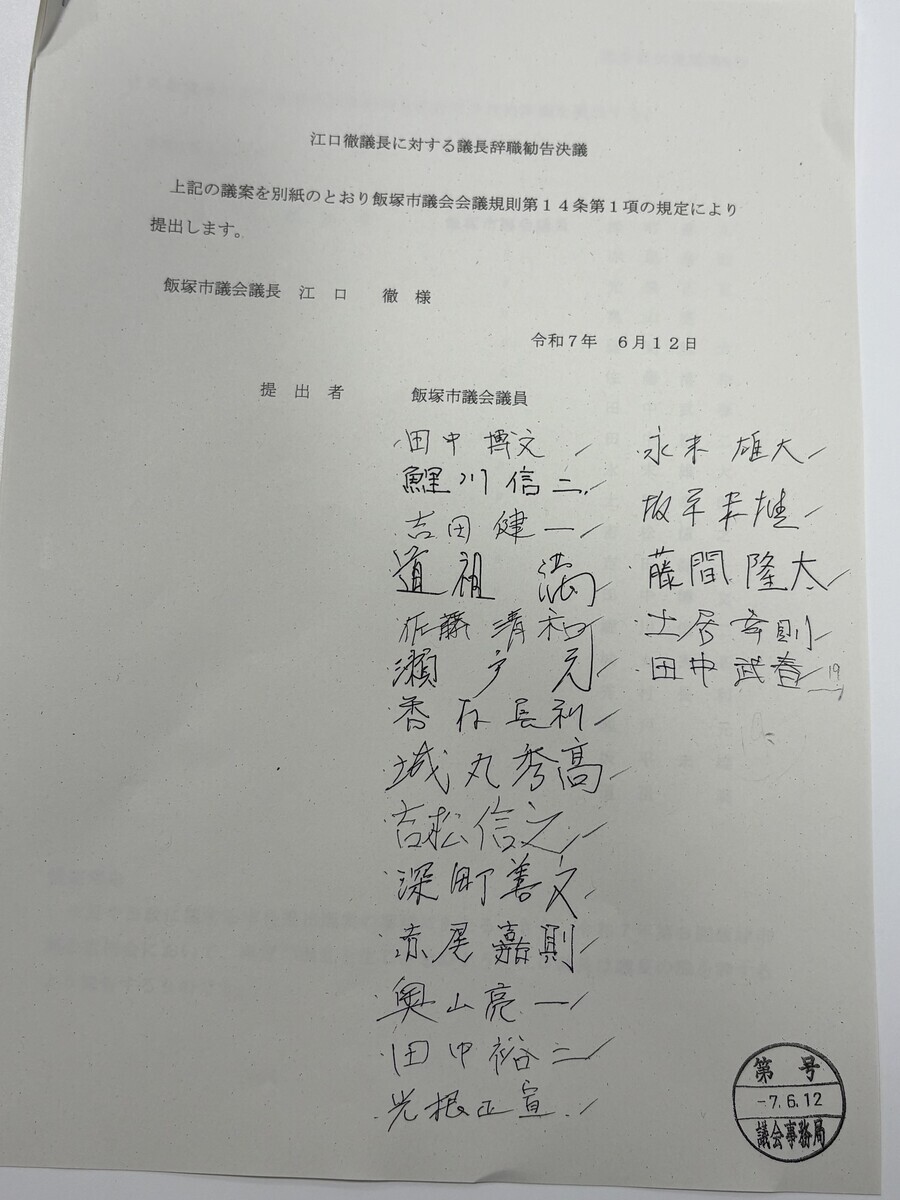 江口徹議長に対する議長辞職勧告決議
上記の議案を別紙のとおり飯塚市議会会議規則第14条第1項の規定により
提出します。
飯塚市議会議長 江 口 徹 様
令和7年 6月12日
提 出 者 飯塚市議会議員
田中 博文
鯉川 信二
吉田 健一
道祖 満
佐藤 清和
瀬戸 元
香村 長利
城丸 秀高
吉松 信之
深町 善文
赤尾 嘉則
奥山 亮一
田中 裕二
光根 正宣
永末 雄大
坂平 末雄
藤間 隆太
土居 幸則
田中 武春
19
第 号
-7.6.12
議会事務局